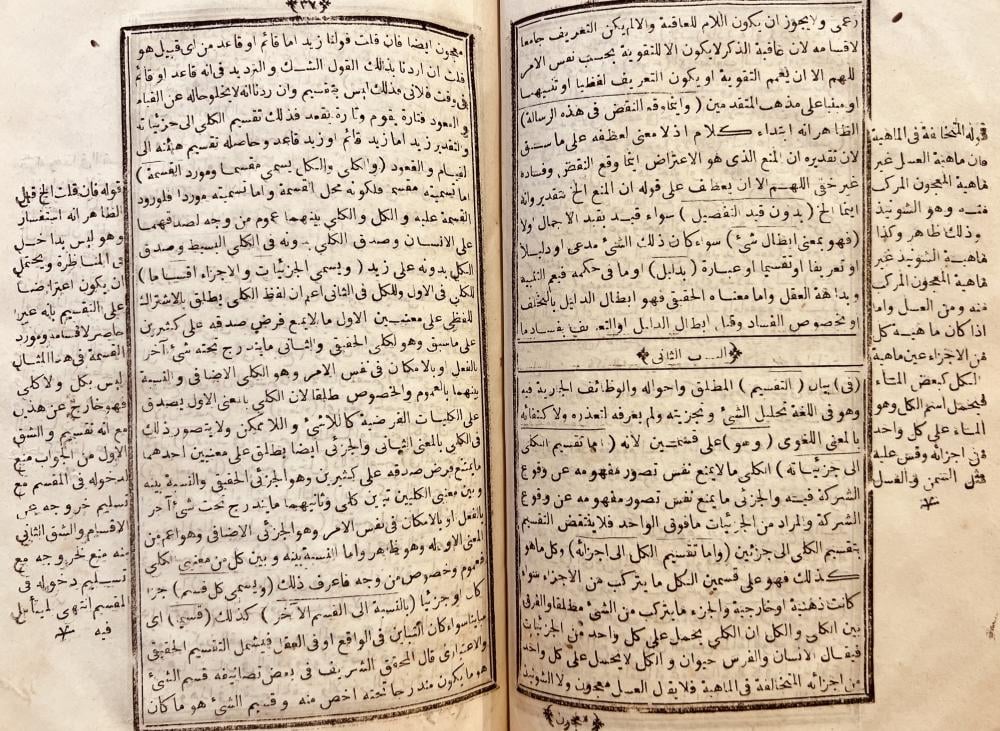 زعمى ولايجوز ان يكون اللام للعاقبة والالم يكن التعريف جامعا
لاقسامه لان عاقبة الذكر لايكون الا للتقوية بحسب نفس الامر
للهم الا ان يعمم التقوية او يكون التعريف لفظيا او تنبيها
او مبنيا على مذهب المتقدمين ( وايتاء قد النقض فى هذه الرسالة)
الظاهر انه ابتداء كلام اذ لا معنى لعطفه على ما سبق
لان تقديره ان المنع الذى هو الاعتراض ايتاء وقع النقض وفساده
غير خفى اللهم الا ان يعطف على قوله ان المنع الخ بتقدير وانه
ايتاء الخ (بدون قيد التفصيل) سواء قيد بقيد الاجمال اولا
(فهو بمعنى ابطال شئ) سواء كان ذلك الشئ مدعى او دليلا
او تعريفا او تقسيما او عبارة (بدليل) او ما فى حكمه فيعم التنبيه
وبداهة العقل واما معناه الحقيقى فهو ابطال الدليل بالتخلف
او بخصوص الفساد وقيل ابطال الدليل او التعريف بفسادما
الباب الثانى
(فى) بيان (التقسيم) المطلق واحواله والوظائف الجارية فيه
وهو فى اللغة تحليل الشئ وتجزيته ولم يعرفه لتعذره ولاكتفائه
بالمعنى اللغوى (وهو) على قسمين لانه (اما تقسيم الكلى
الى جزئياته) الكلى ما لا يمنع نفس تصور مفهومه عن وقوع
الشركة فيه والجزئى ما يمنع نفس تصور مفهومه عن وقوع
الشركة والمراد من الجزئيات ما فوق الواحد فلا ينتقض التقسيم
بتقسيم الكلى الى جزئين (واما تقسيم الكل الى اجزائه) وكل ما هو
كذلك فهو على قسمين الكل ما يتركب من الاجزاء سواء
كانت ذهنية او خارجية والجزء ما يتركب من الشئ مطلقا والفرق
بين الكلى والكل ان الكلى يحمل على كل واحد من الجزئيات
فيقال الانسان والفرس حيوان والكل لا يحمل على كل واحد
من اجزائه المتخالفة فى الماهية فلا يقال العسل معجون ولا الشونيز
معجون
قوله المتخالفة فى الماهية
فان ماهية العسل غير
ماهية المعجون المركب
منه وهو الشونيذ
وذلك ظاهر وكذا
ماهية الشونيذ غير
ماهية المعجون المركب
منه ومن العسل واما
اذا كان ماهية كل
من الاجزاء عين ماهية
الكل كبعض الماء
فيحمل اسم الكل وهو
الماء على كل واحد
من اجزائه وقس عليه
مثل السمن والعسل
٣٧
معجون ايضا فان قلت قولنا زيد اما قائم او قاعد من اى قبيل هو
قلت ان اردنا بذلك القول الشك والترديد فى انه قاعد او قائم
فى وقت فلانى فذلك ليس بتقسيم وان ردنا انه لا يخلو حاله عن القيام
والقعود فتارة يقوم وتارة يقعد فذلك تقسيم الكلى الى جزئياته
والتقدير زيد اما زيد قائم او زيد قاعد وحاصله تقسيم هيئته الى
لقيام والقعود (والكلى والكل يسمى مقسما ومورد القسمة)
اما تسميته مقسم فلكونه محل القسمة واما تسميته موردا فلورود
القسمة عليه والكل والكلى بينهما عموم من وجه لصدقهما
على الانسان وصدق الكلى بدونه فى الكلى البسيط وصدق
الكل بدونه على زيد (ويسمى الجزئيات والاجزاء اقساما)
للكلى فى الاول وللكل فى الثانى اعم ان لفظ الكلى يطلق بالاشتراك
للفظى على معنيين الاول ما لا يمنع فرض صدقه على كثيرين
على ما سبق وهو لكلى الحقيقى والثانى ما يندرج تحته شئ آخر
بالفعل او بالامكان فى نفس الامر وهو الكلى الاضافى والنسبة
بينهما بالعموم والخصوص مطلقا لان الكلى بالمعنى الاول يصدق
على الكليات الفرضية كاللاشئ واللاممكن ولا يتصور ذلك
فى الكلى بالمعنى الثانى والجزئى ايضا يطلق على معنيين احدهما
ما يمتنع فرض صدقه على كثيرين وهو الجزئى الحقيقى والنسبة بينه
وبين معنى الكليين تباين كلى وثانيهما ما يندرج تحت شئ آخر
بالفعل او بالامكان فى نفس الامر وهو الجزئى الاضافى وهو اعم من
المعنى الاول له وهو ظاهر واما النسبة بينه وبين كل من معنى الكلى
فعموم وخصوص من وجه فاعرف ذلك (ويسمى كل قسم) جزءا
كان او جزئيا (بالنسبة الى القسم الآخر) كذلك (قسيما) اى
مباينا سواء كان التباين فى الواقع او فى العقل فيشمل التقسيم الحقيقى
والاعتبارى قال المحقق الشريف فى بعض تصانيفه قسم الشئ
هو ما يكون مندرجا تحته اخص منه وقسيم الشئ هو ما كان
قوله فان قلت الخ قيل
الظاهر انه استفسار
وهو ليس بداخل
فى المناظرة ويحتمل
ان يكون اعتراضا
على التقسيم بانه غير
حاصر لاقسامه ومورد
القسمة فى هذا المثال
ليس بكل ولا كلى
فهو خارج عن هذين
مع انه تقسيم والشق
الاول من الجواب منع
لدخوله فى المقسم مع
تسليم خروجه عن
الاقسام والشق الثانى
منه منع لخروجه مع
تسليم دخوله فى
المقسم انتهى ليتأمل
فيه